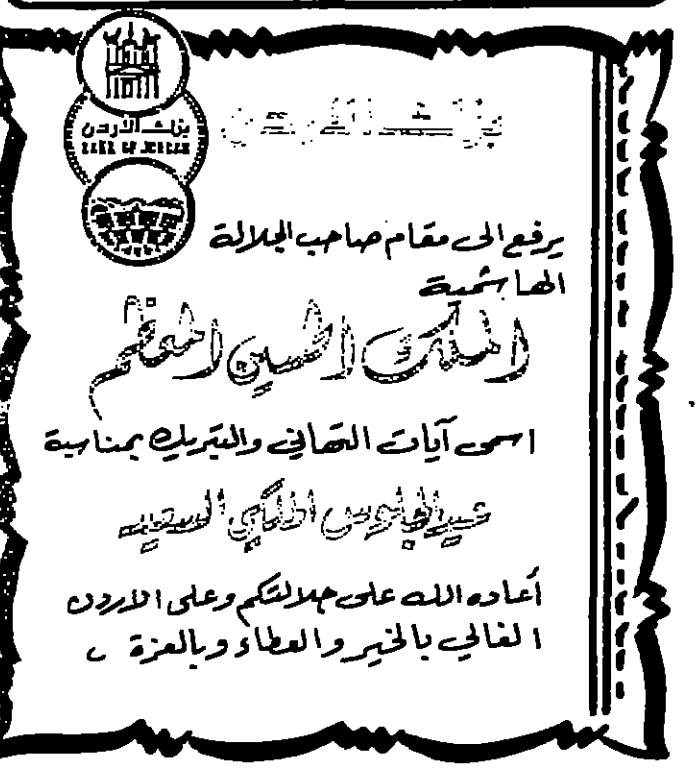 بنك الأردن
BANK OF JORDAN
بنك الأردن
يرفع الى مقام صاحب الجلالة
الهاشمية
الملك الحسين المعظم
اسمى آيات التهاني والتبريك بمناسبة
عيد الجلوس الملكي السعيد
أعاده الله على جلالتكم وعلى الاردن
الغالي بالخير والعطاء وبالعزة